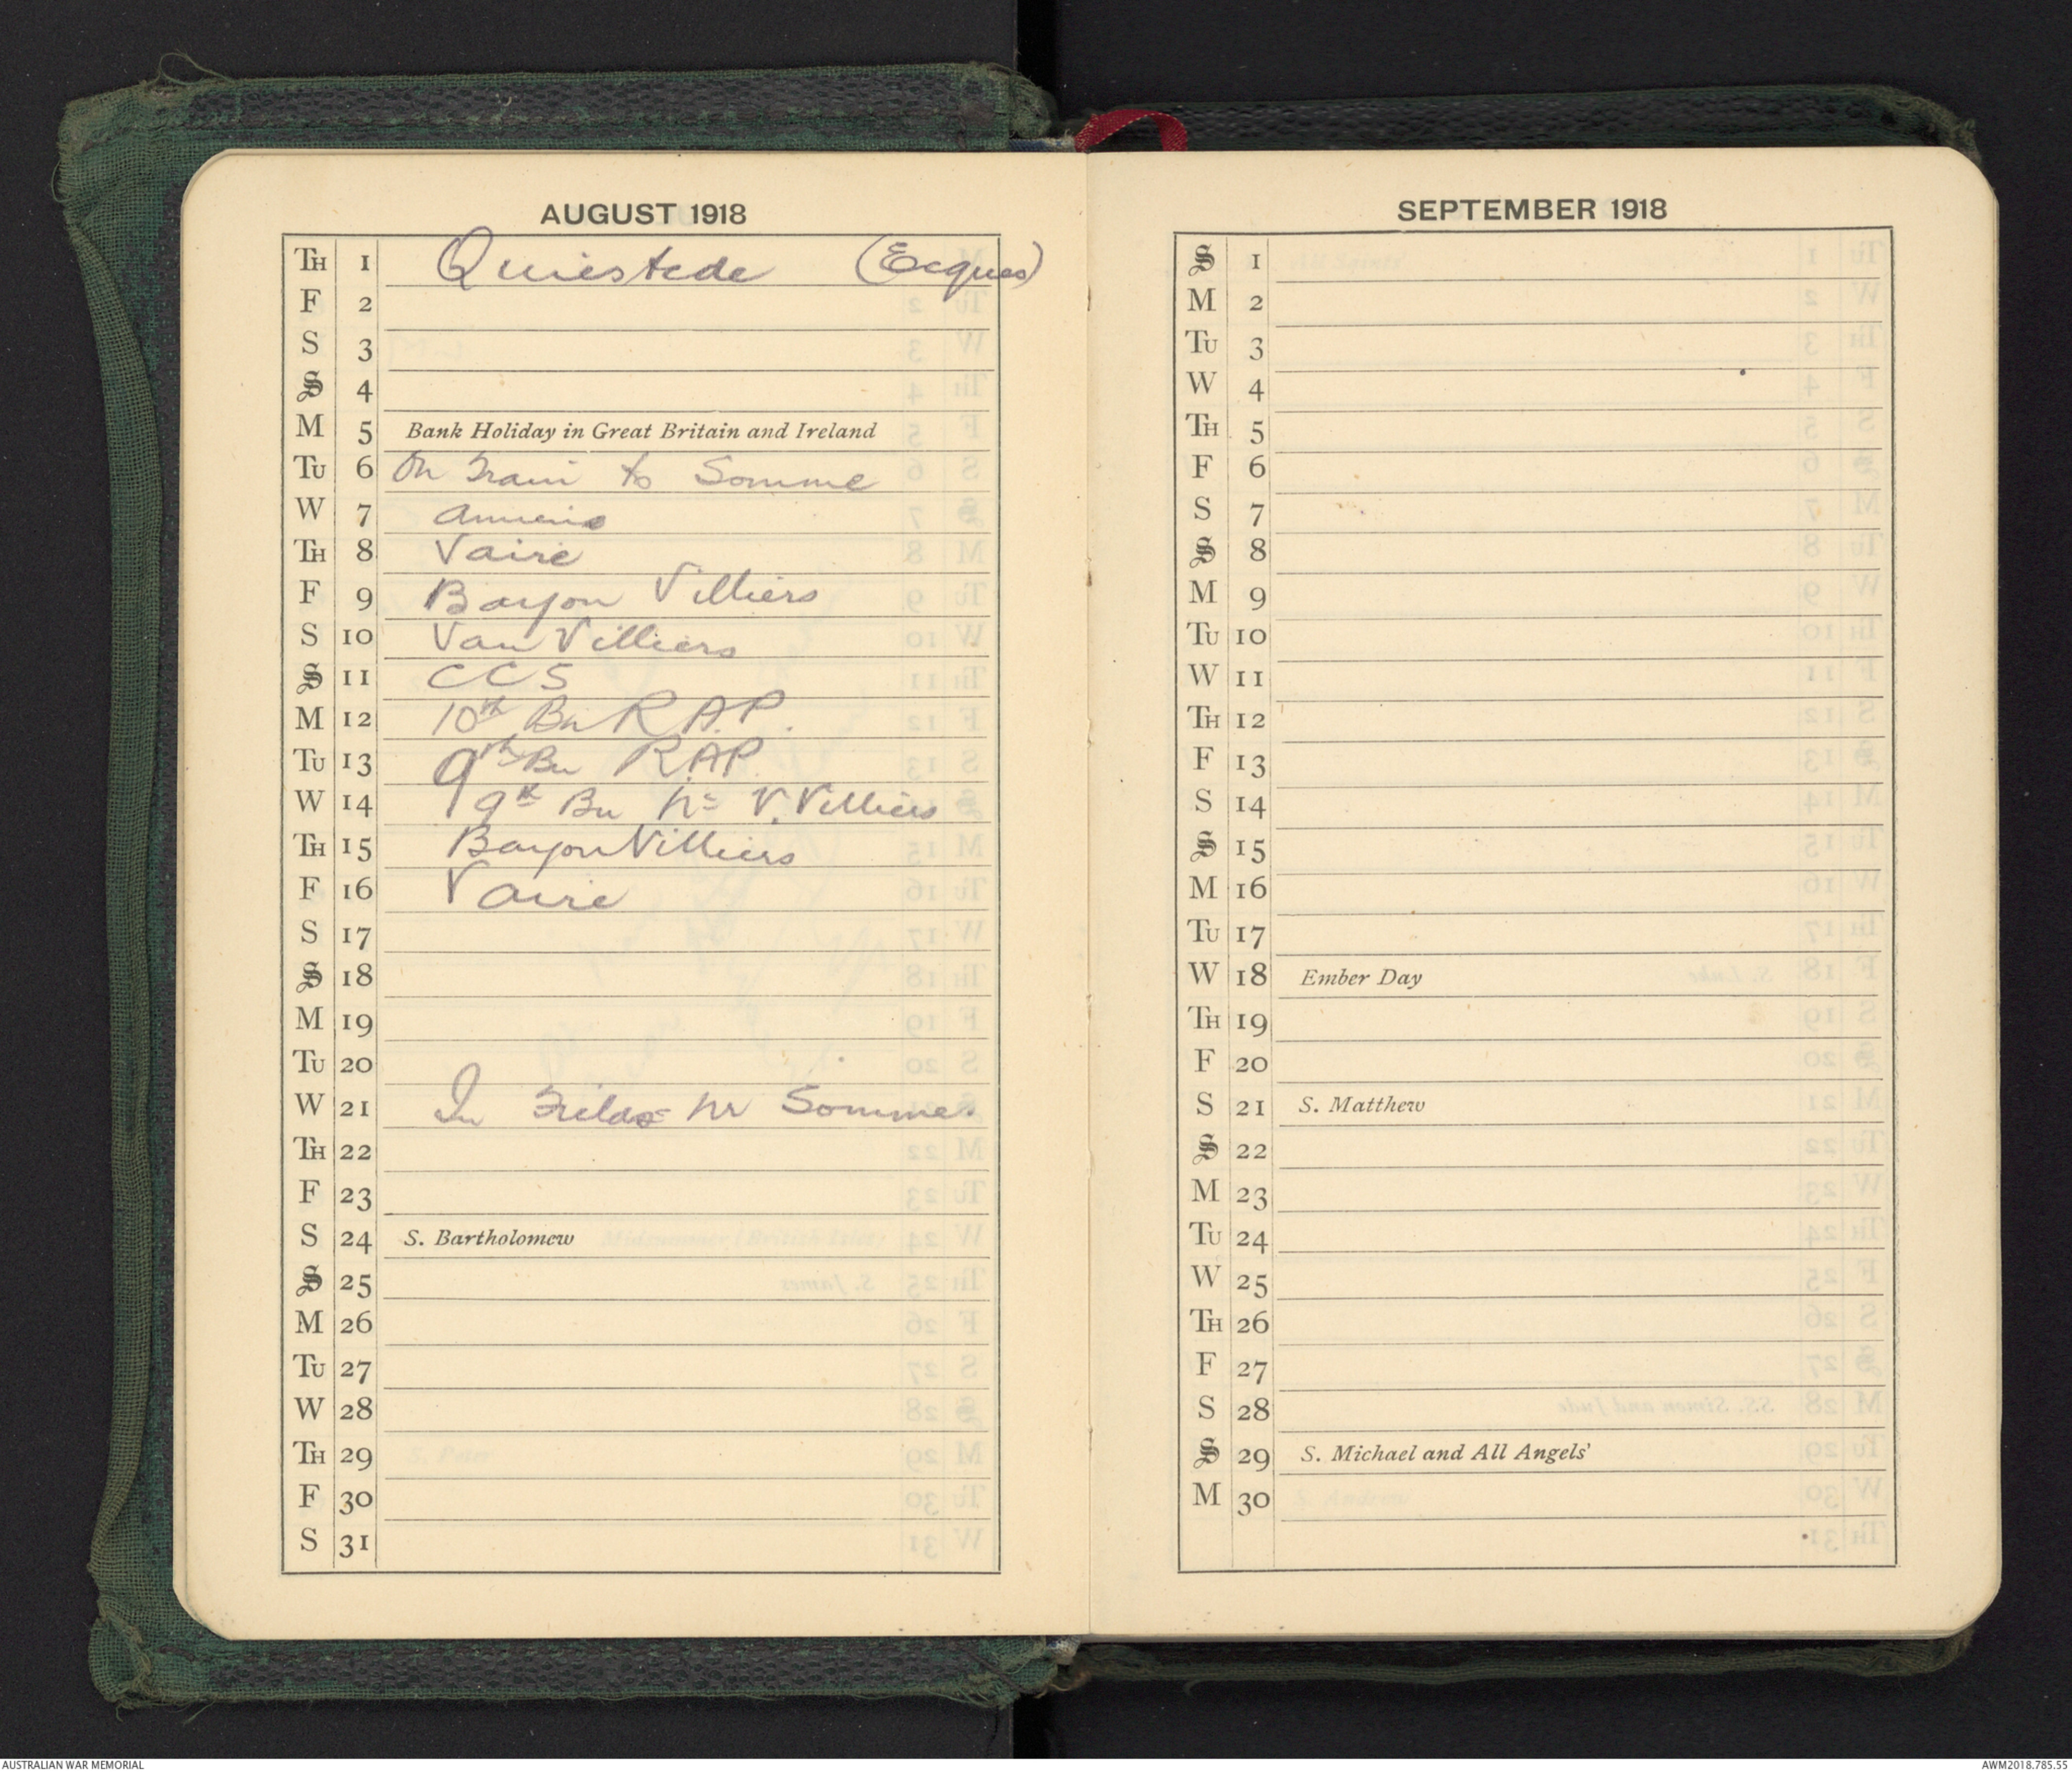 AUGUST 1918
TH 1 Quiestede (Ecques)
F 2
S 3
S 4
M 5 Bank Holiday in Great Britain and Ireland
TU 6 On Train to Somme
W 7 Amiens
TH 8 Vaire
F 9 Bayon Villiers
S 10 Vau Villiers
S 11 CCS
M 12 10th Bn R.A.P.
TU 13 9th Bn R.A.P.
W 14 9th Bn nr V. Villiers
TH 15 Bayon Villiers
F 16 Vaire
S 17
S 18
M 19
TU 20
W 21 In Fields nr Somme.
TH 22
F 23
S 24 S. Bartholomew
S 25
M 26
TU 27
W 28
TH 29
F 30
S 31
SEPTEMBER 1918
S 1
M 2
TU 3
W 4
TH 5
F 6
S 7
S 8
M 9
TU 10
W 11
TH 12
F 13
S 14
S 15
M 16
TU 17
W 18 Ember Day
TH 19
F 20
S 21 S. Matthew
S 22
M 23
TU 24
W 25
TH 26
F 27
S 28
S 29 S. Michael and All Angels'
M 30
AUSTRALIAN WAR MEMORIAL
AWM2018.785.55